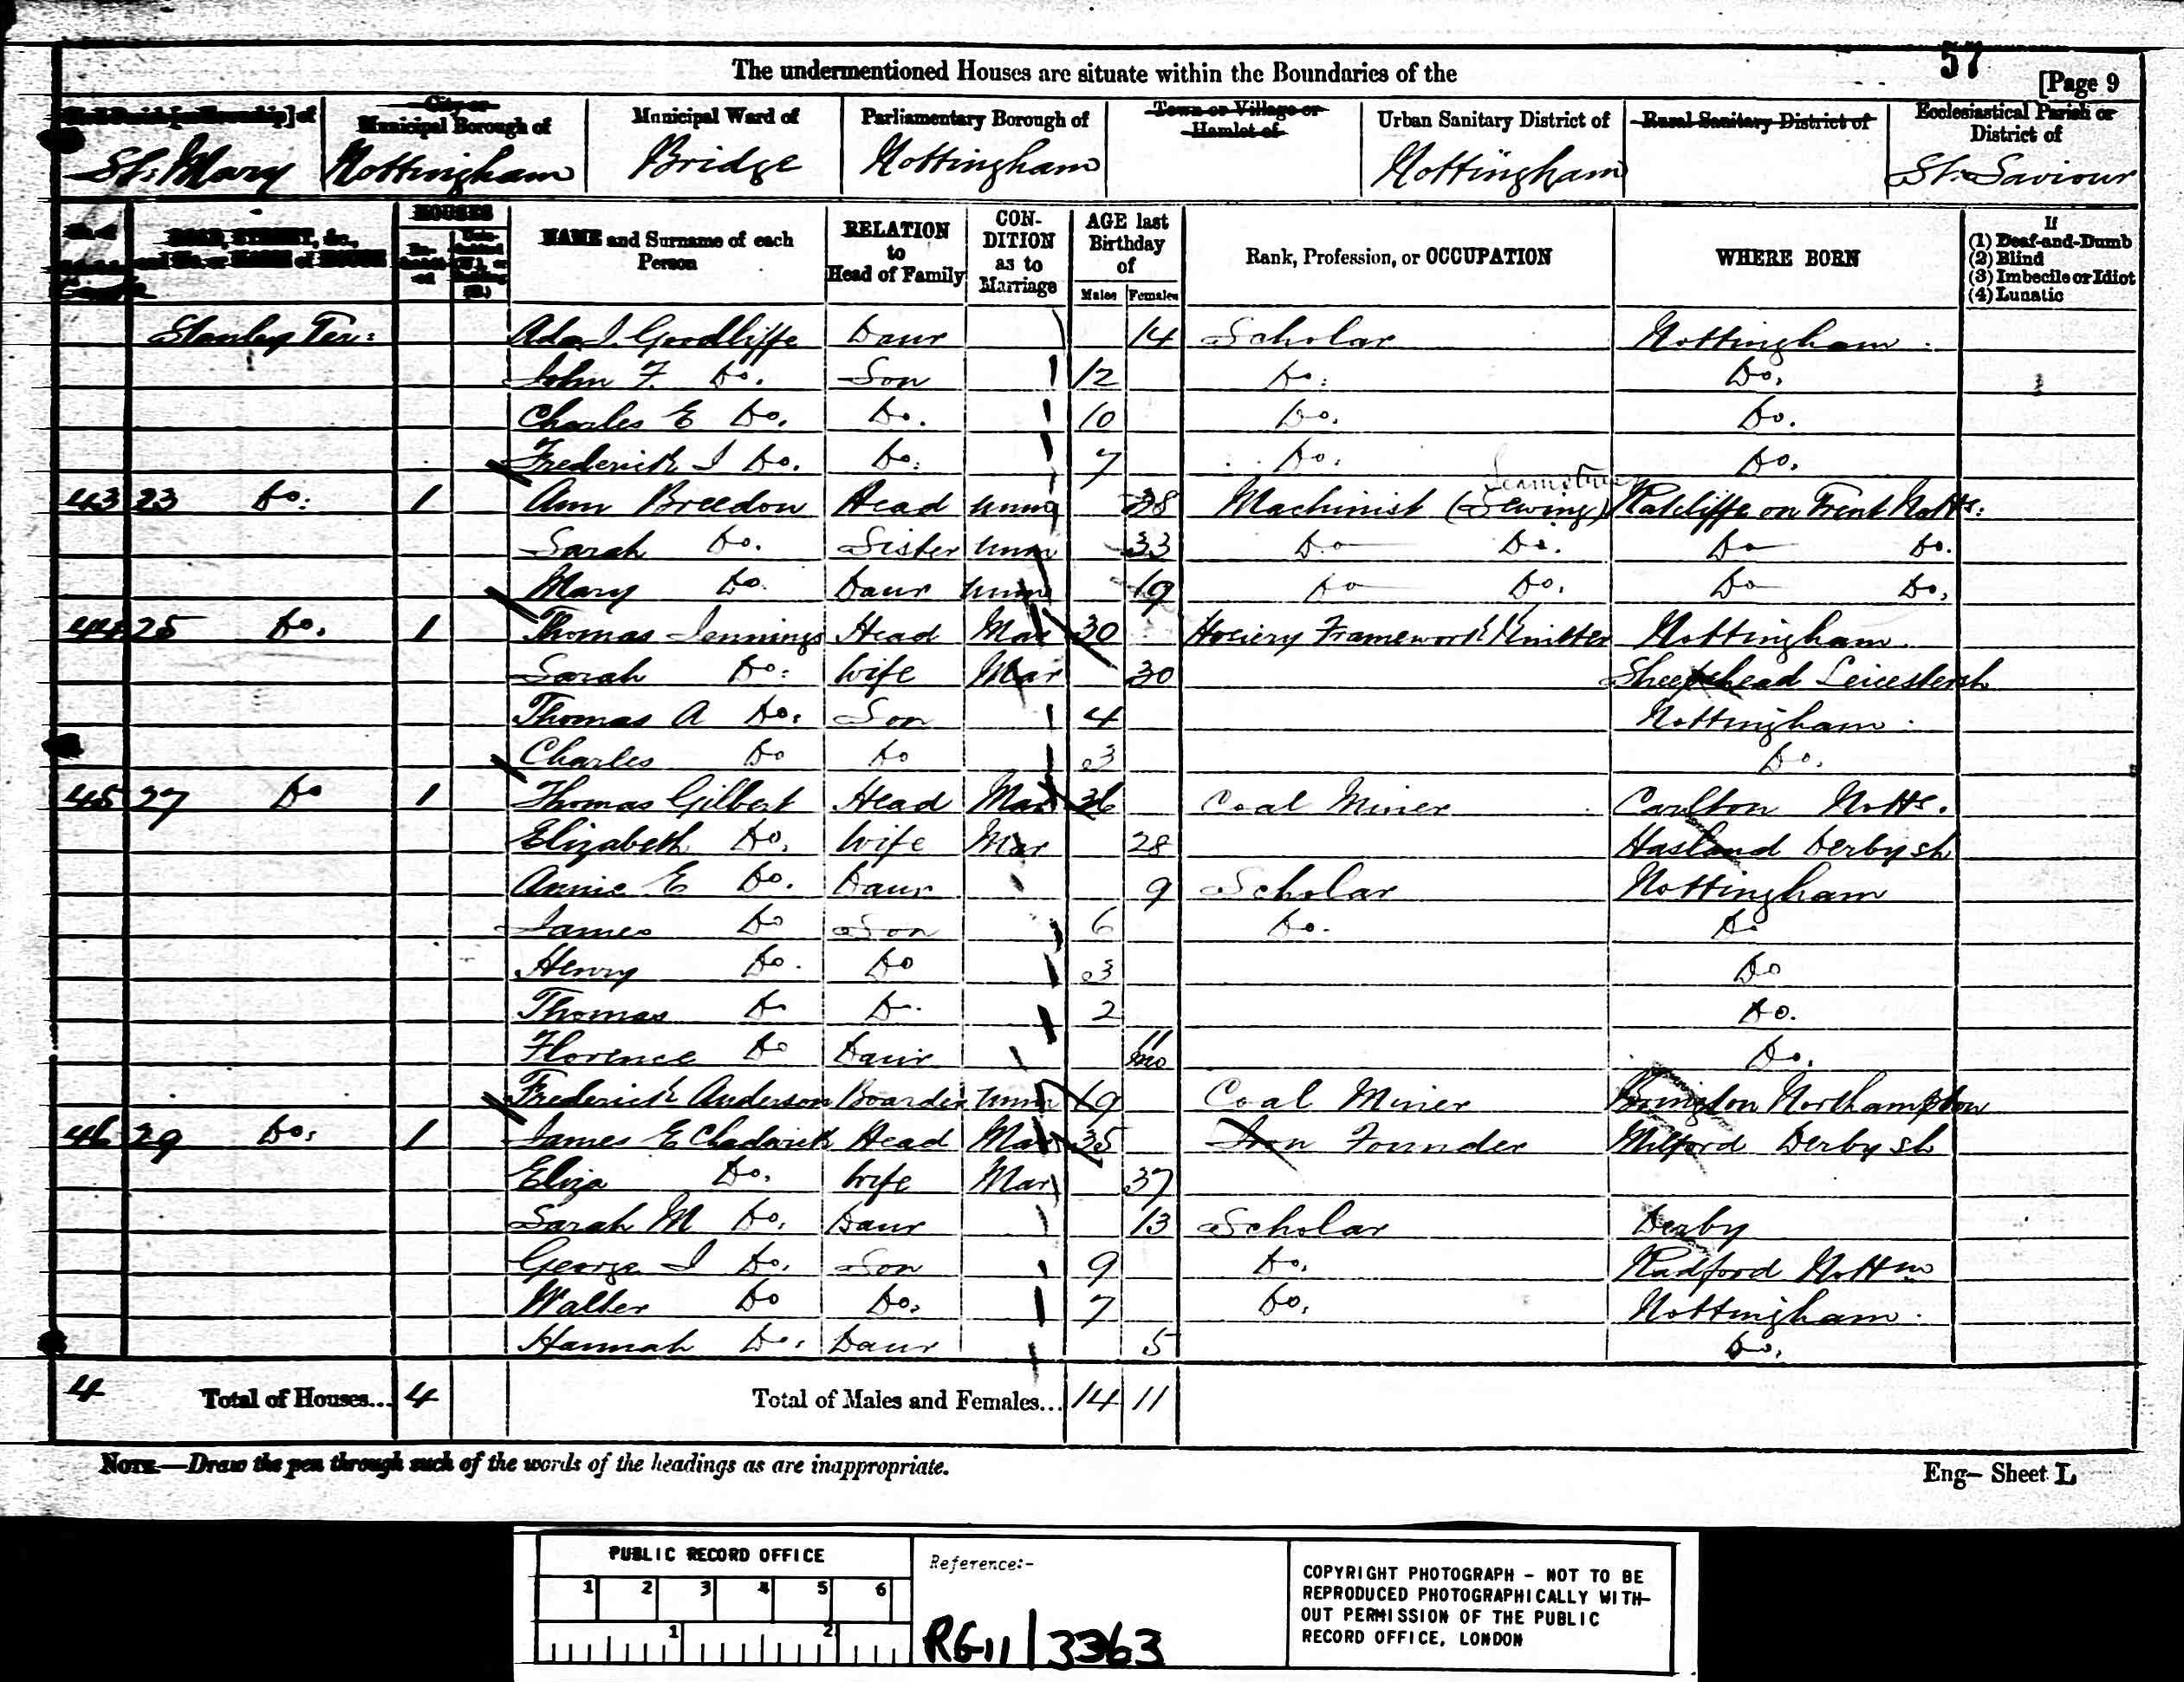 57
The undermentioned Houses are situate within the Boundaries of the
[Page 9
Civil Parish [or Township] of
City or Municipal Borough of
Municipal Ward of
Parliamentary Borough of
Town or Village or Hamlet of
Urban Sanitary District of
Rural Sanitary District of
Ecclesiastical Parish or District of
St. Mary Nottingham Bridge Nottingham Nottingham St. Saviour
ROAD, STREET, &c., and No. or NAME of HOUSE
HOUSES
NAME and Surname of each Person
RELATION to Head of Family
CONDITION as to Marriage
AGE last Birthday of
Males Females
Rank, Profession, or OCCUPATION
WHERE BORN
If
(1) Deaf-and-Dumb
(2) Blind
(3) Imbecile or Idiot
(4) Lunatic
Stanley Ter: Ada J. Goodliffe Daur 14 Scholar Nottingham
John F. Do. Son 12 Do. Do.
Charles E Do. Do. 10 Do. Do.
Frederick J Do. Do. 7 Do. Do.
43 23 Do. 1 Ann Breedon Head Unm 38 Machinist (Sewing) Ratcliffe on Trent Notts:
Sarah Do. Sister Unm 33 Do Do. Do Do.
Mary Do. Daur Unm 19 Do Do. Do Do.
44 25 Do. 1 Thomas Jennings Head Mar 30 Hosiery Framework Knitter Nottingham
Sarah Do. Wife Mar 30 Sheepshead Leicestersh
Thomas A Do. Son 4 Nottingham
Charles Do Do 3 Do.
45 27 Do 1 Thomas Gilbert Head Mar 36 Coal Miner Carlton Notts.
Elizabeth Do. Wife Mar 28 Hasland Derbysh
Annie E Do. Daur 9 Scholar Nottingham
James Do Son 6 Do. Do
Henry Do. Do 3 Do
Thomas Do Do. 2 Do.
Florence Do Daur 11 mo Do.
Frederick Anderson Boarder Unm 19 Coal Miner Northampton
46 29 Do. 1 James E Chadwick Head Mar 35 Iron Founder Milford Derbysh
Eliza Do. Wife Mar 37
Sarah M Do. Daur 13 Scholar Derby
George J Do. Son 9 Do. Radford Nottm
Walter Do Do. 7 Do. Nottingham
Hannah Do. Daur 5 Do.
4 Total of Houses... 4 Total of Males and Females... 14 11
NOTE.—Draw the pen through such of the words of the headings as are inappropriate.
Eng- Sheet L
PUBLIC RECORD OFFICE
1 2 3 4 5 6
1 2
Reference:-
RG11/3363
COPYRIGHT PHOTOGRAPH - NOT TO BE
REPRODUCED PHOTOGRAPHICALLY WITH-
OUT PERMISSION OF THE PUBLIC
RECORD OFFICE, LONDON